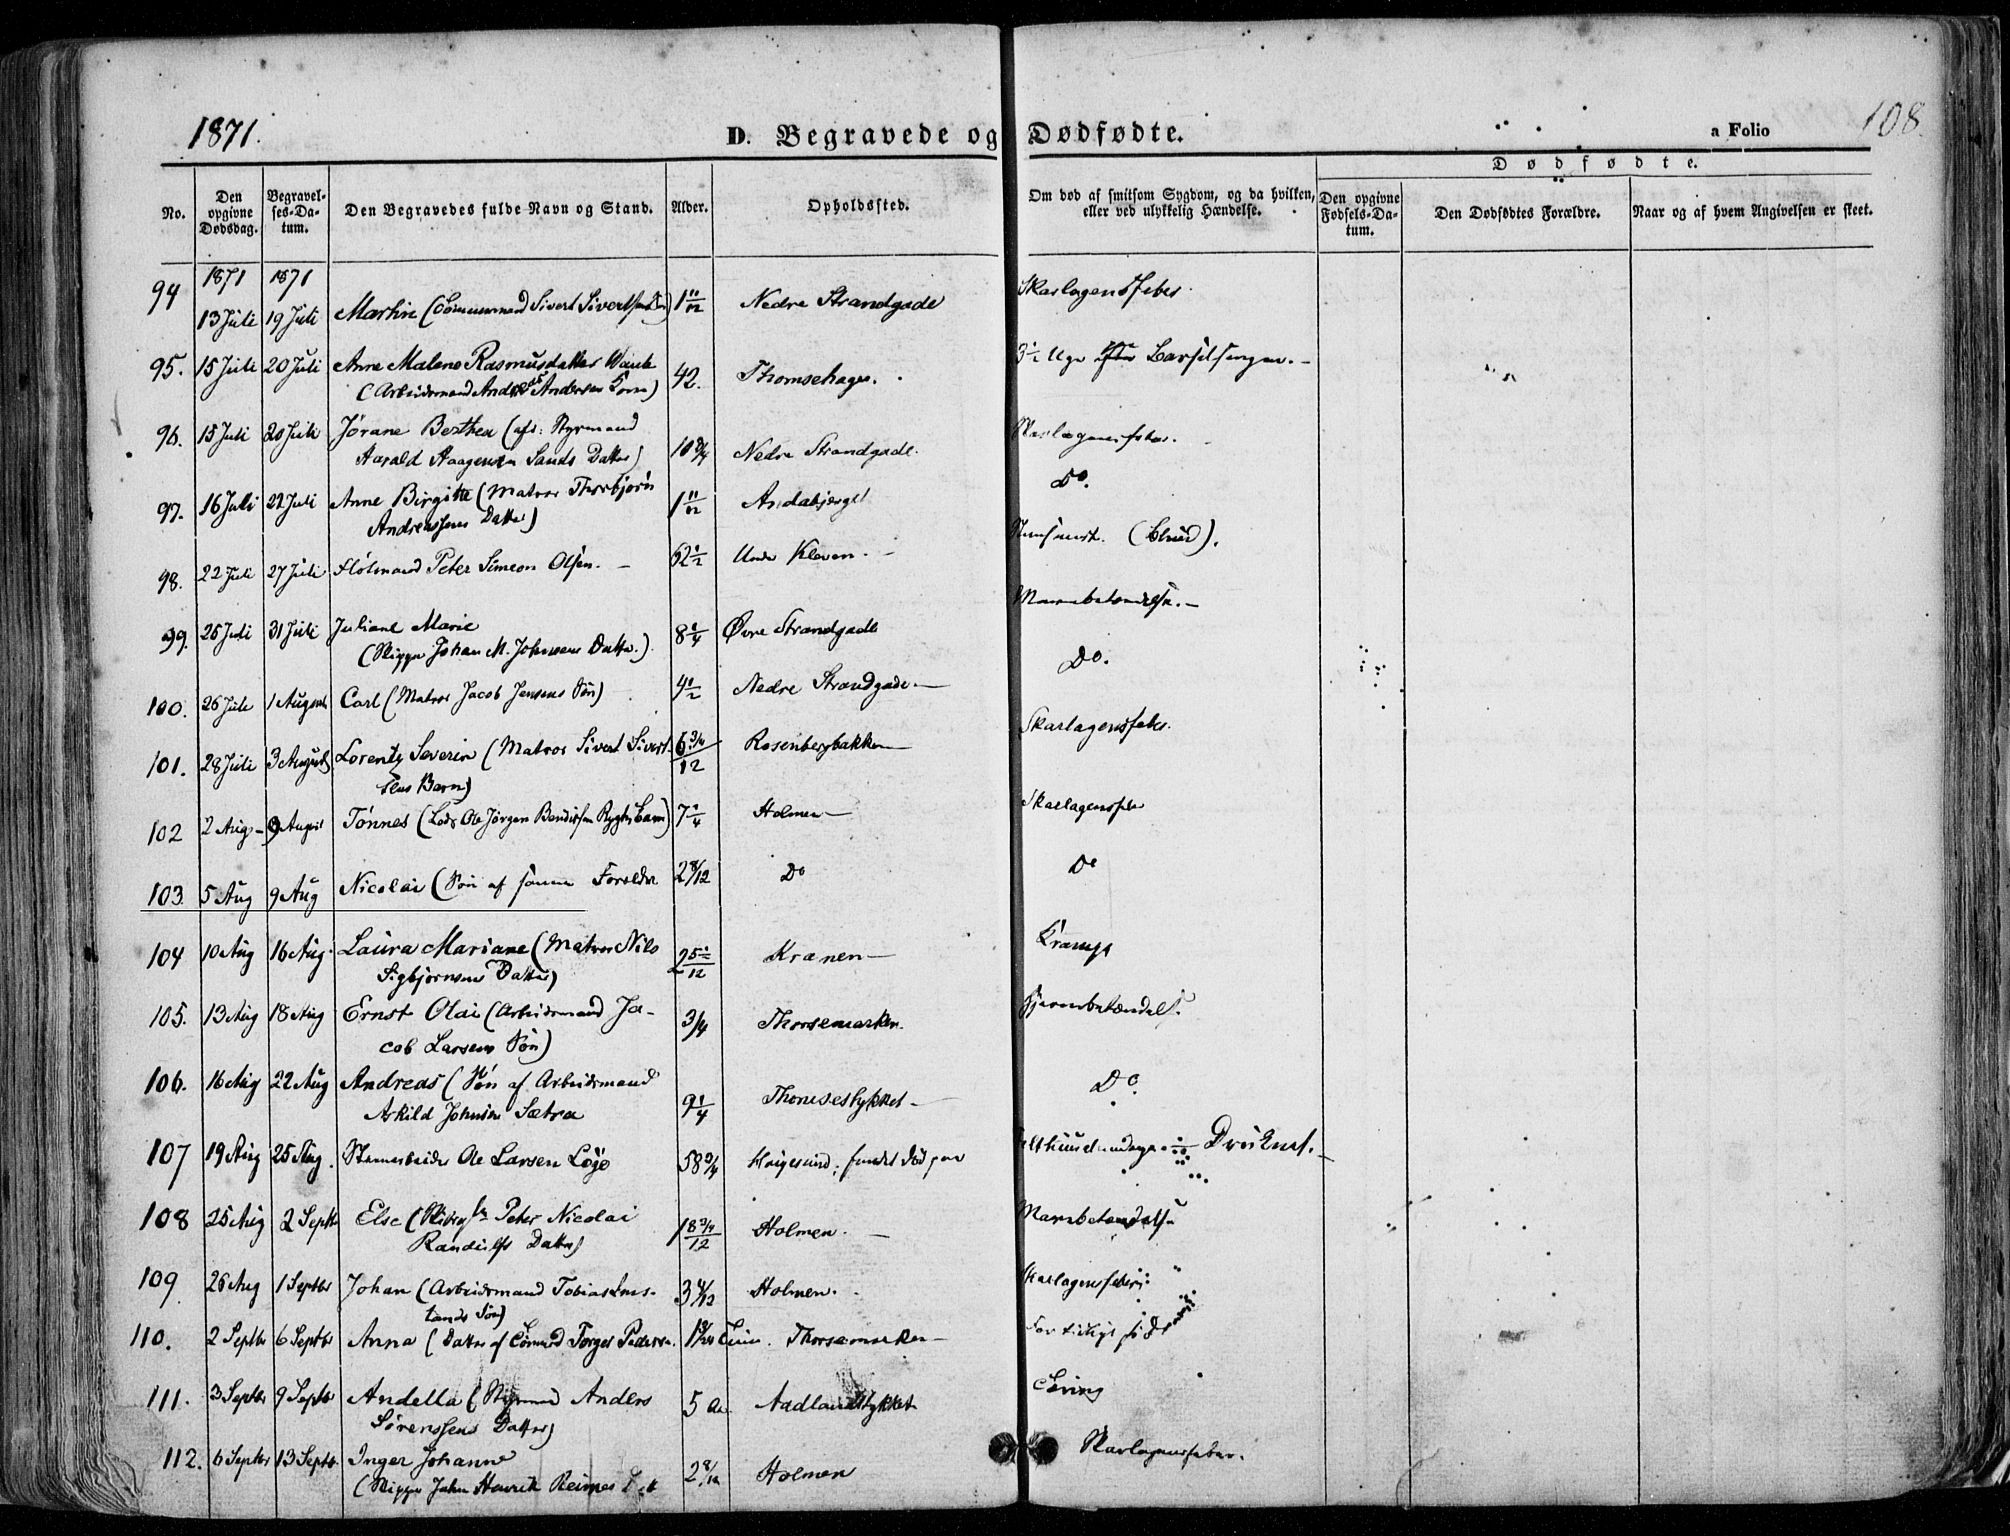 1871.
D. Begravede og Dødfødte.
a Folio
108.
Dødfødte.
No.
Den opgivne Dødsdag.
Begravelses-Datum.
Den Begravedes fulde Navn og Stand.
Alder.
Opholdssted.
Om død af smitsom Sygdom, og da hvilken, eller ved ulykkelig Hændelse.
Den opgivne Fødsels-Datum.
Den Dødfødtes Forældre.
Naar og af hvem Angivelsen er skeet.
1871 1871
94 13 Juli 19 Juli Martin (Tømmermand Sivert Sivertsens 1 11/12 Nedre Strandgade Skarlagensfeber
95. 15 Juli 20 Juli Anne Malene Rasmusdatter 42. Thomsehagen. 3½ Uge efter Barselsengen.
(Arbeidsmand Andreas Andersen Kone)
96. 15 Juli 20 Juli Jørane Berthea (afd: Styrmand
Harald Haagensen Sands Datter) 10 3/4 Nedre Strandgade. Skarlagensfeber.
97. 16 Juli 22 Juli Anne Birgitte (Matros Thorbjørn 1 11/12 Andabjerget Do.
Andreassens Datter)
98. 22 Juli 27 Juli Peter Simeon Olsen. 62½ Under Kleven.
99. 25 Juli 31 Juli Juliane Marie 8 1/4 Øvre Strandgade Mavebetændelse.
(Skipper Johan M. Johnsens Datter.)
100. 26 Juli 1 August Carl (Matros Jacob Jensens Søn) 4½ Nedre Strandgade Do.
101. 28 Juli 3 August Lorentz Severin (Matros Sivert Sivert- 6 3/4/12 Rosenbergbakken Skarlagensfeber.
sens Barn)
102 2 Aug 9 August Tønnes (Lods Ole Jørgen Bendixsen Rygh Barn) 7 1/4 Holmen Skarlagensfeber
103. 5 Aug 9 Aug Nicolai (Søn af samme Forældre 2 8/12 Do Do
104 10 Aug 16 Aug. Laura Mariane (Matros Nils 2 5½/12 Kranen Krampe
Sigbjørnsens Datter)
105. 13 Aug 18 Aug Ernst Olai (Arbeidsmand Ja- 3/4 Thorsemarken. Hjernebetændelse.
cob Larsens Søn)
106. 16 Aug 22 Aug Andreas (Søn af Arbeidsmand 9 1/4 Thomsestykket Do.
Askild Johnsen Sætra
107 19 Aug 25 Aug. Ole Larsen 58 3/4 Haugesund; fundet død paa
108 25 Aug 2 Septbr Else (Peter Nicolai 1 8 3/4/12 Holmen. Mavebetændelse
Randulfs Datter)
109 26 Aug 1 Septbr Johan (Arbeidsmand Tobias 3 4/12 Holmen. Skarlagensfeber
lands Søn)
110. 2 Septbr 6 Septbr Anna (Datter af Torger Pedersen. Thorsemarken For tidligt født
111. 3 Septbr 9 Septbr Andella (Styrmand Anders 5 Aar Aadlandstykket Tæring
Sørenssens Datter)
112. 6 Septbr 13 Septbr. Inger Johanne 2 8/12 Holmen Skarlagensfeber.
(Skipper John Henrik Reimes Datt